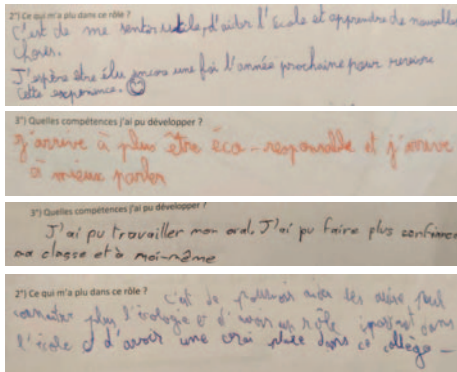 2°) Ce qui m'a plu dans ce rôle ?
C'est de me sentir utile, d'aider l'école et apprendre de nouvelles
choses.
J'espère être élu encore une fois l'année prochaine pour revivre
cette experience.
3°) Quelles compétences j'ai pu développer ?
j'arrive à plus être éco-responsable et j'arrive
à mieux parler
3°) Quelles compétences j'ai pu développer ?
J'ai pu travailler mon oral. J'ai pu faire plus confiance
aa classe et à moi-même
2°) Ce qui m'a plu dans ce rôle ?
c'est de pouvoir aider les
connaitre plus l'écologie et d'avoir un rôle dans
l'école et d'avoir une vrai place dans ce collège